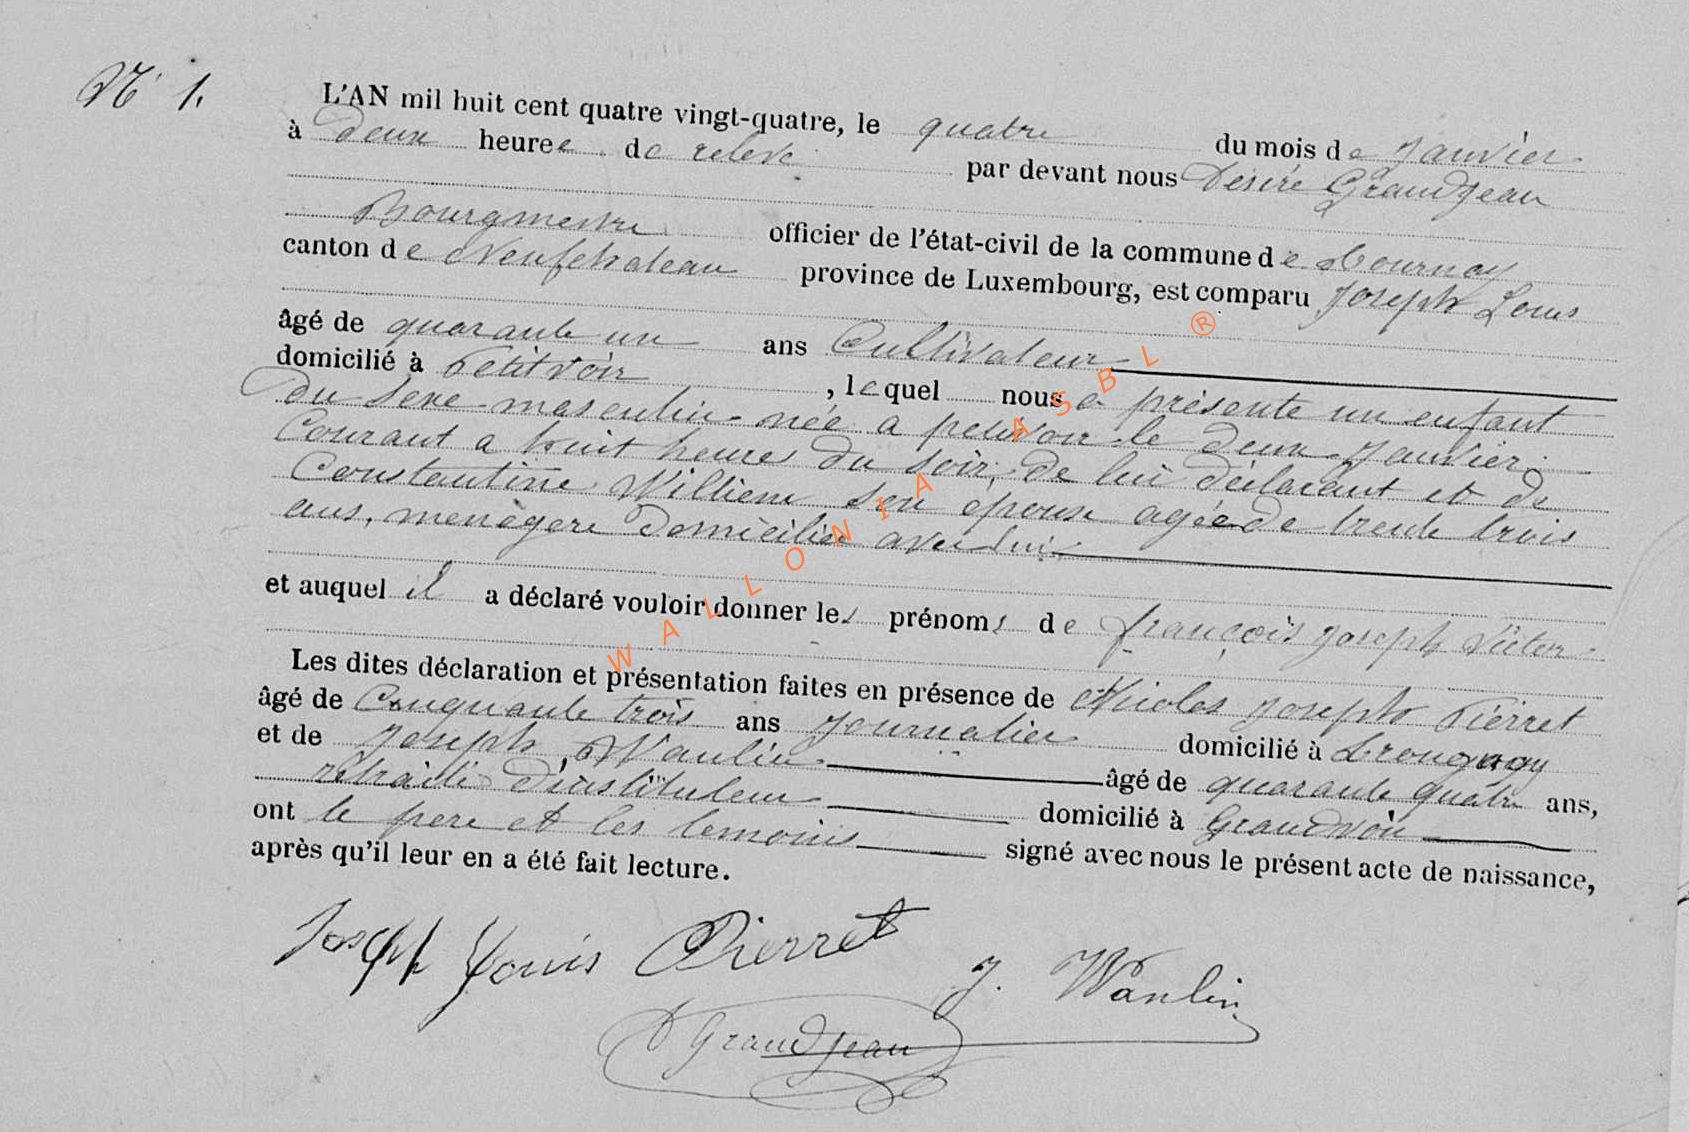 N° 1.
L'AN mil huit cent quatre vingt-quatre, le quatre du mois de Janvier
à deux heures de relevé par devant nous Désiré Grandjean
Bourgmestre officier de l'état-civil de la commune de Tournay
canton de Neufchateau province de Luxembourg, est comparu Joseph Louis
âgé de quarante un ans Cultivateur
domicilié à Petitvoir, lequel nous a présenté un enfant
du sexe masculin née a petitvoir le deux Janvier
Courant a huit heures du soir, de lui déclarant et de
Constantine Willieme son épouse agée de trente trois
ans, menagere domiciliée avec lui
et auquel il a déclaré vouloir donner les prénoms de françois Joseph Victor
Les dites déclaration et présentation faites en présence de Nicolas Joseph Pierret
âgé de Cinquante trois ans Journalier domicilié à
et de Joseph Wanlin âgé de quarante quatre ans,
retraité d'instituteur domicilié à Grandvoir
ont le pere et les temoins signé avec nous le présent acte de naissance,
après qu'il leur en a été fait lecture.
Joseph Louis Pierret
J. Wanlin
D Grandjean
WALLONIA ASBL ®